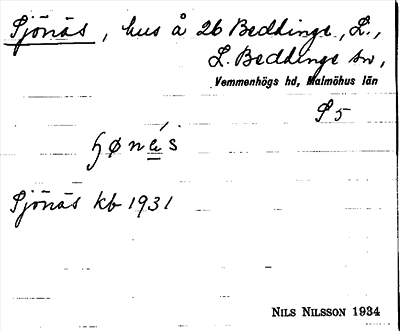 Sjönäs, hus å 26 Beddinge, L.,
L. Beddinge sn,
Vemmenhögs hd, Malmöhus län
S 5
ɧønɛ́s
Sjönäs kb 1931
NILS NILSSON 1934